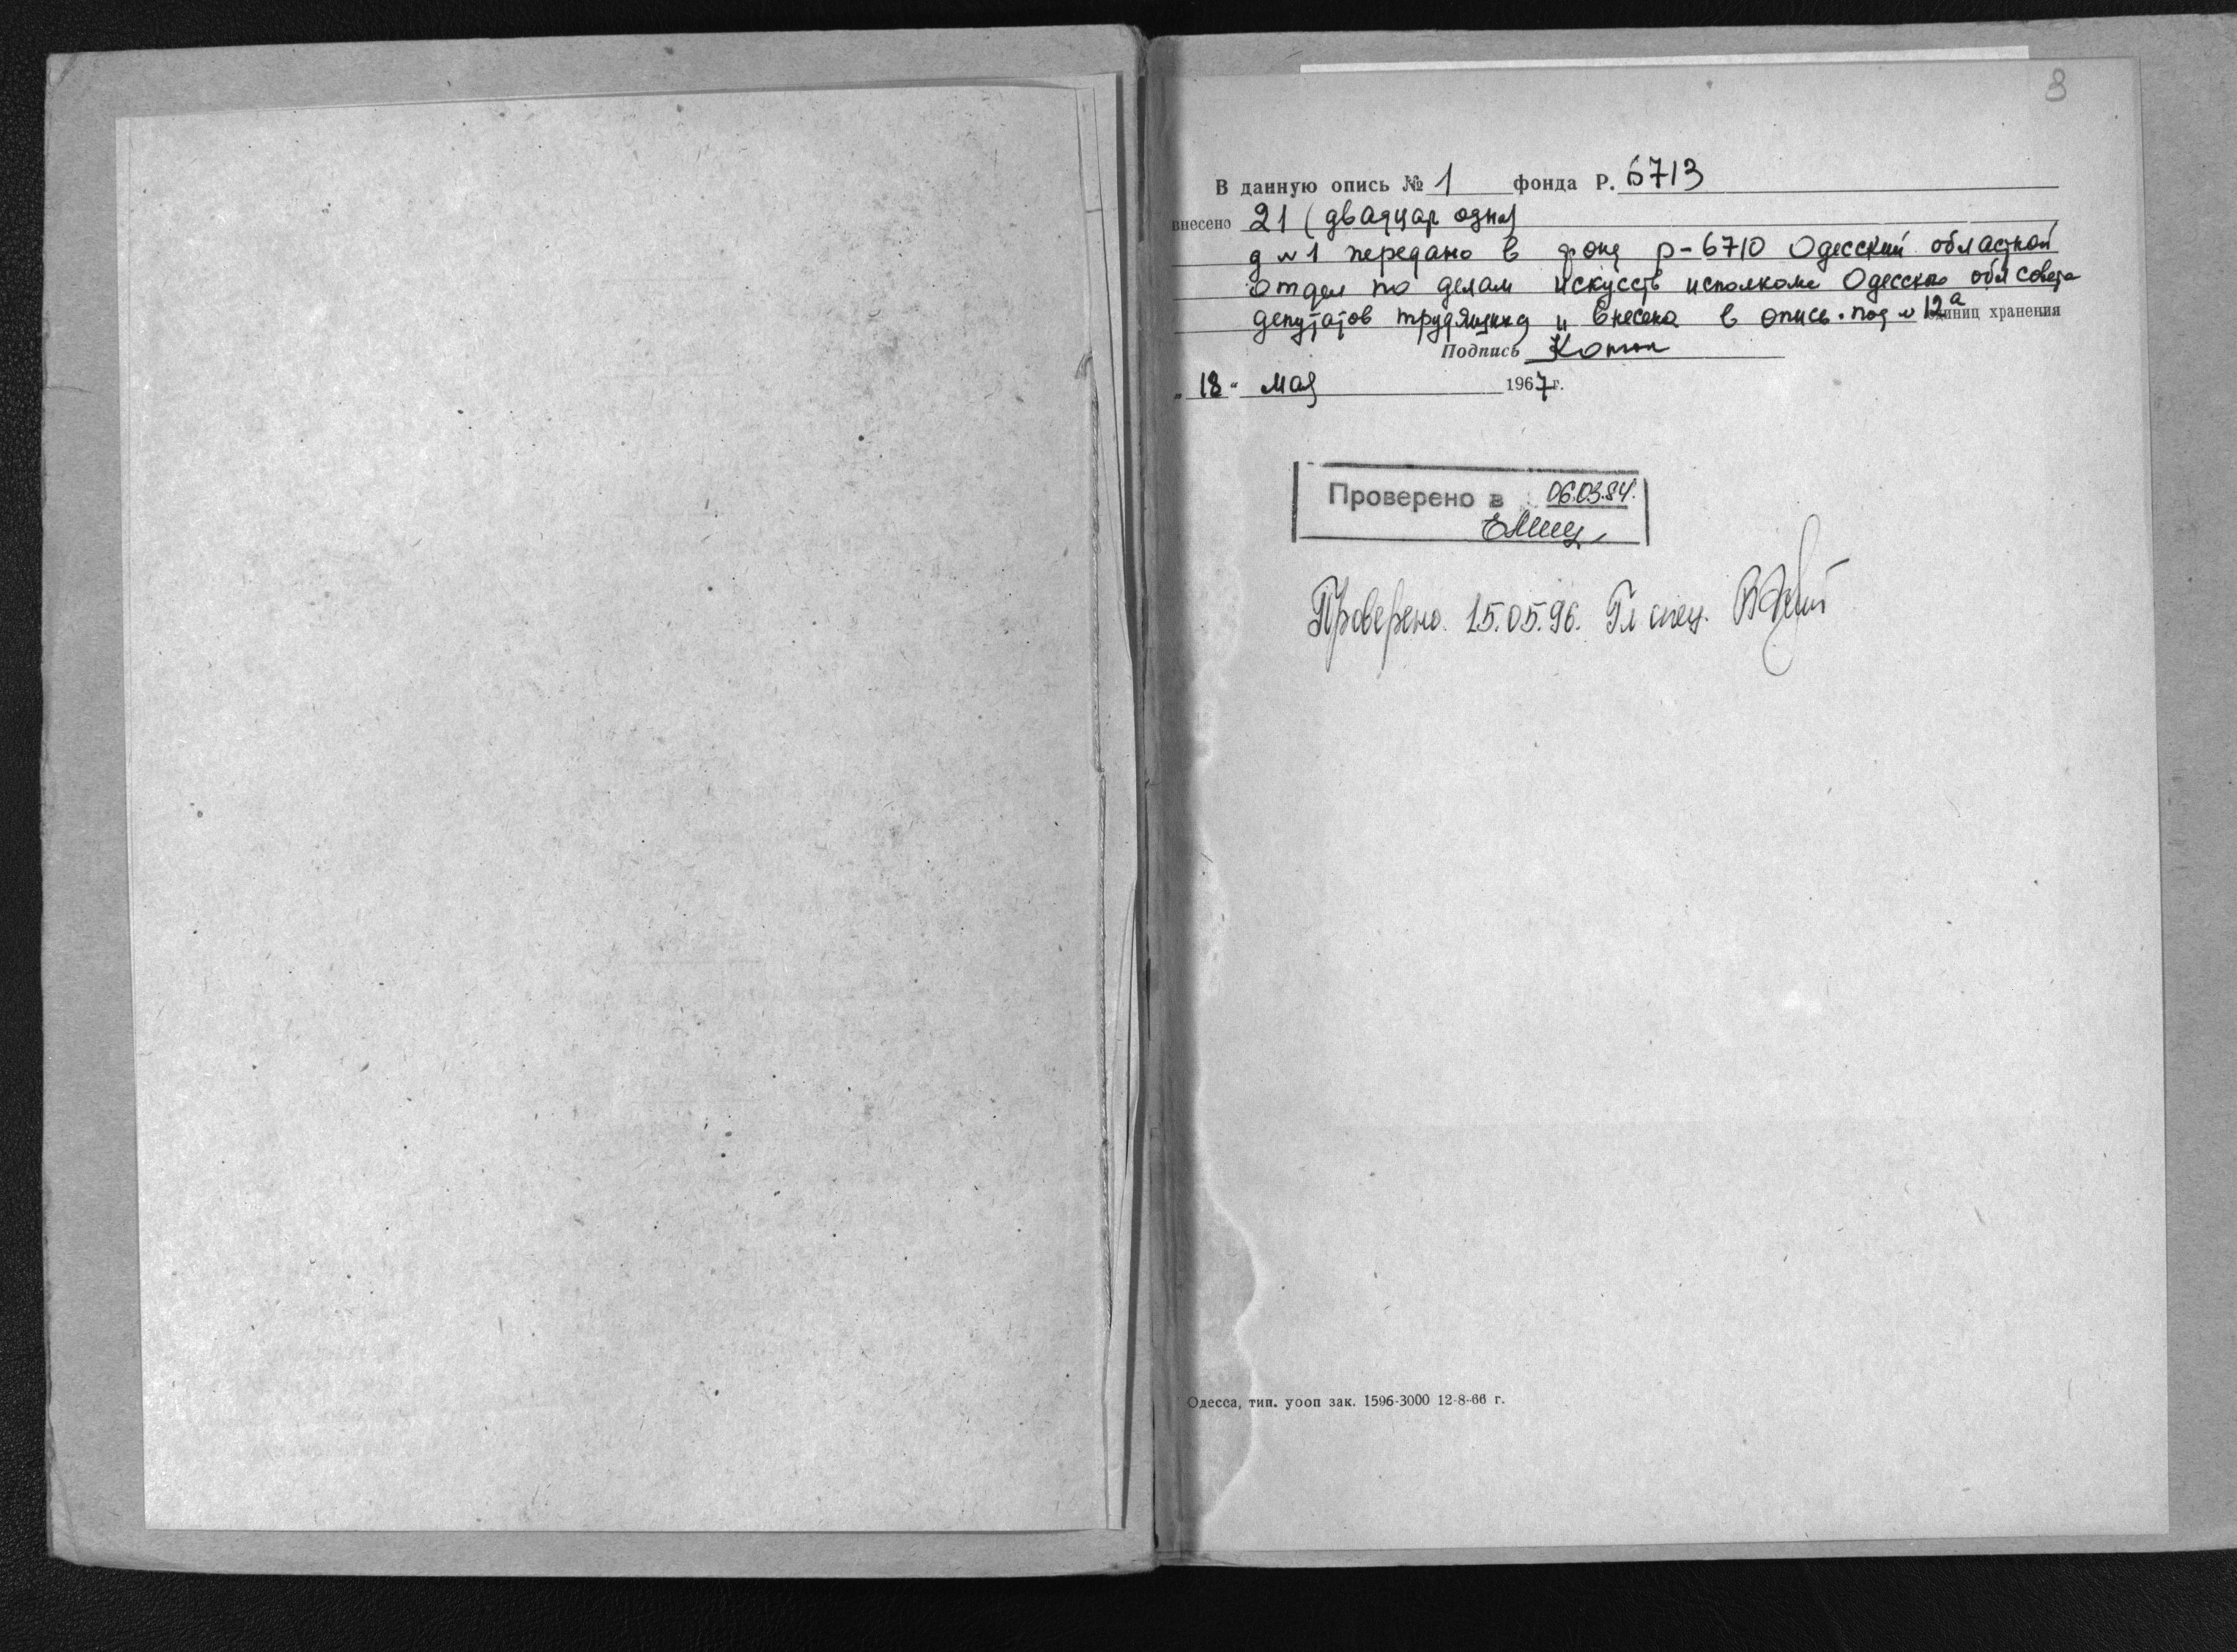 8
В данную опись № 1 фонда Р. 6713
внесено 21 (двадцать одна)
д № 1 передано в фонд р-6710 Одесский областной
отдел по делам искусств исполкома Одесского облсовета
депутатов трудящихся и внесена в опись под № 12а единиц хранения
Подпись
„18“ мая 1967 г.
Проверено в 06.03.84.
Проверено 15.05.96. Гл спец.
Одесса, тип. уооп зак. 1596-3000 12-8-66 г.